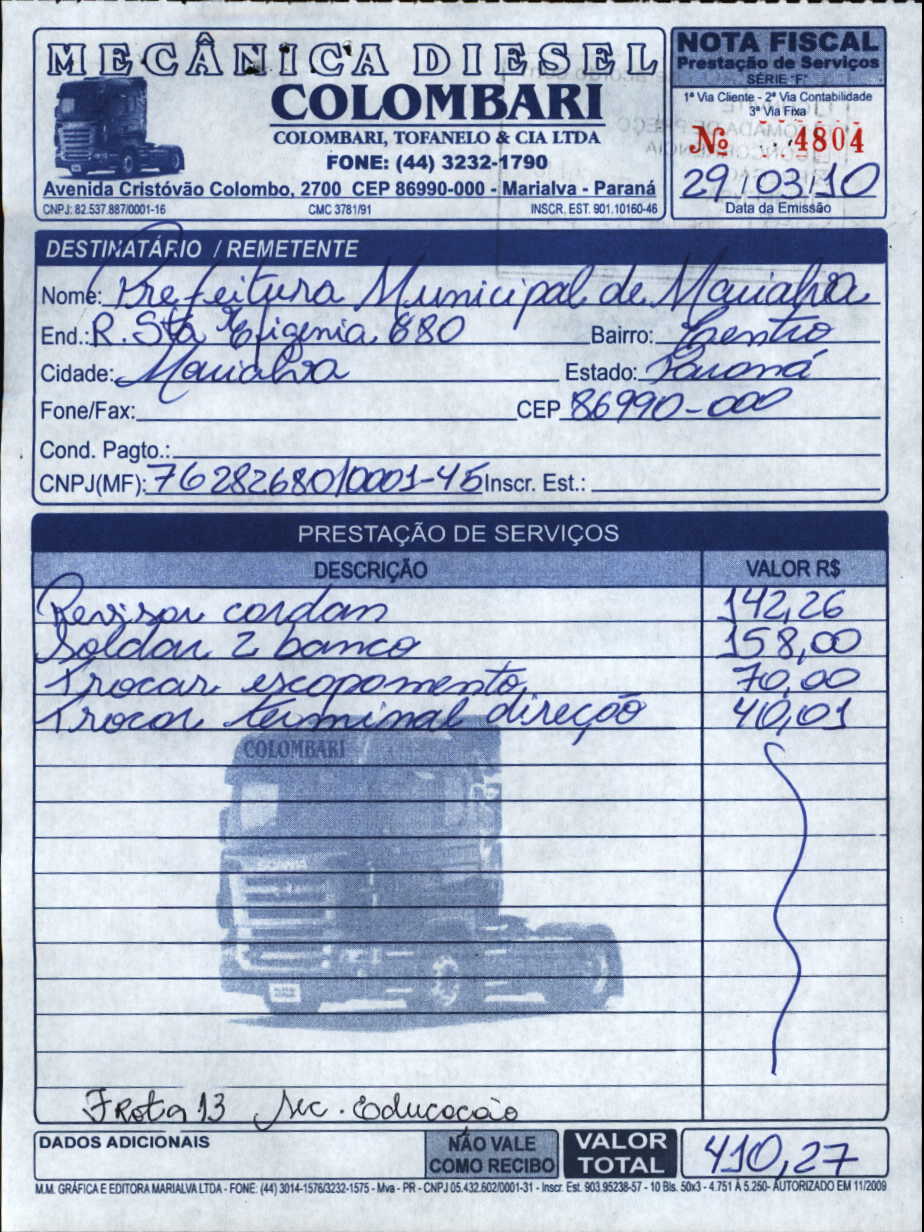 MECÂNICA DIESEL
COLOMBARI
COLOMBARI, TOFANELO & CIA LTDA
FONE: (44) 3232-1790
Avenida Cristóvão Colombo, 2700 CEP 86990-000 - Marialva - Paraná
CNPJ: 82.537.887/0001-16 CMC 3781/91 INSCR. EST. 901.10160-46
NOTA FISCAL
Prestação de Serviços
SÉRIE "F"
1ª Via Cliente - 2ª Via Contabilidade
3ª Via Fixa
Nº 4804
29/03/10
Data da Emissão
DESTINATÁRIO / REMETENTE
Nome: Prefeitura Municipal de Marialva
End.: R. Sta Efigenia 680 Bairro: Centro
Cidade: Marialva Estado: Paraná
Fone/Fax: CEP 86990-000
Cond. Pagto.:
CNPJ(MF): 76282680/0001-45 Inscr. Est.:
PRESTAÇÃO DE SERVIÇOS
DESCRIÇÃO VALOR R$
Revisar cardan 142,26
Soldar 2 banco 158,00
Trocar escapamento, 70,00
Trocar terminal direção 40,01
COLOMBARI
Frota 13 Sec. Educação
DADOS ADICIONAIS
NÃO VALE
COMO RECIBO
VALOR
TOTAL
410,27
M.M. GRÁFICA E EDITORA MARIALVA LTDA - FONE: (44) 3014-1576/3232-1575 - Mva - PR - CNPJ 05.432.602/0001-31 - Inscr. Est. 903.95238-57 - 10 Bls. 50x3 - 4.751 À 5.250- AUTORIZADO EM 11/2009